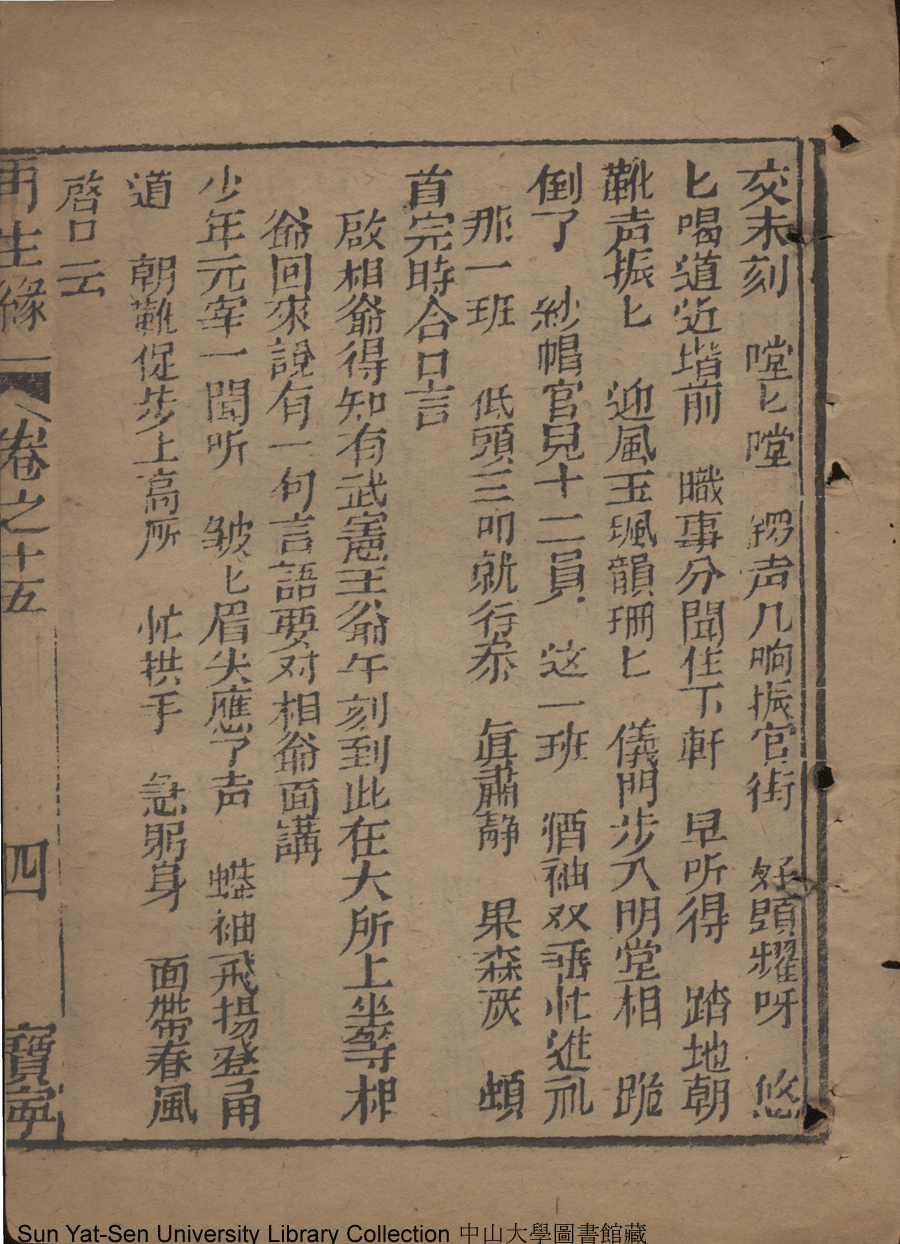 交未刻　嘡匕嘡　锣声几响振官街　好頭耀呀　悠
匕喝道近堦前　職事分開住下軒　早听得　踏地朝
靴声振匕　迎風玉珮韻珊匕　儀門步入明堂相　跪
倒了　紗帽官兒十二員　这一班　袖双垂忙進礼
那一班　低頭三叩就行叅　真肅静　果森灰　頔
首完時合口言
啟相爺得知有武憲王爺午刻到此在大所上坐等相
爺回來說有一句言語要对相爺面講
少年元宰一聞听　皱匕眉尖應了声　蟒袖飛揚登甬
道　朝靴促步上高所　忙拱手　急躬身　面帶春風
啓口云
再生緣　卷之十五　四　寶寧
Sun Yat-Sen University Library Collection 中山大學圖書館藏